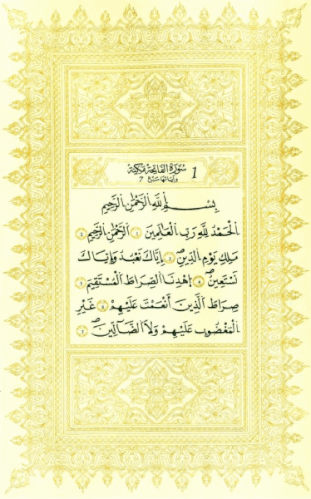 سُورَةُ الفَاتِحَةِ مَكِّيَّة 1
وَآيَاتُهَا سَبْعٌ 7
بِسْمِ اللَّهِ الرَّحْمَٰنِ الرَّحِيمِ
الْحَمْدُ لِلَّهِ رَبِّ الْعَالَمِينَ ۝ الرَّحْمَٰنِ الرَّحِيمِ ۝
مَلِكِ يَوْمِ الدِّينِ ۝ إِيَّاكَ نَعْبُدُ وَإِيَّاكَ
نَسْتَعِينُ ۝ اهْدِنَا الصِّرَاطَ الْمُسْتَقِيمَ ۝
صِرَاطَ الَّذِينَ أَنْعَمْتَ عَلَيْهِمْ ۝ غَيْرِ
الْمَغْضُوبِ عَلَيْهِمْ وَلَا الضَّالِّينَ ۝